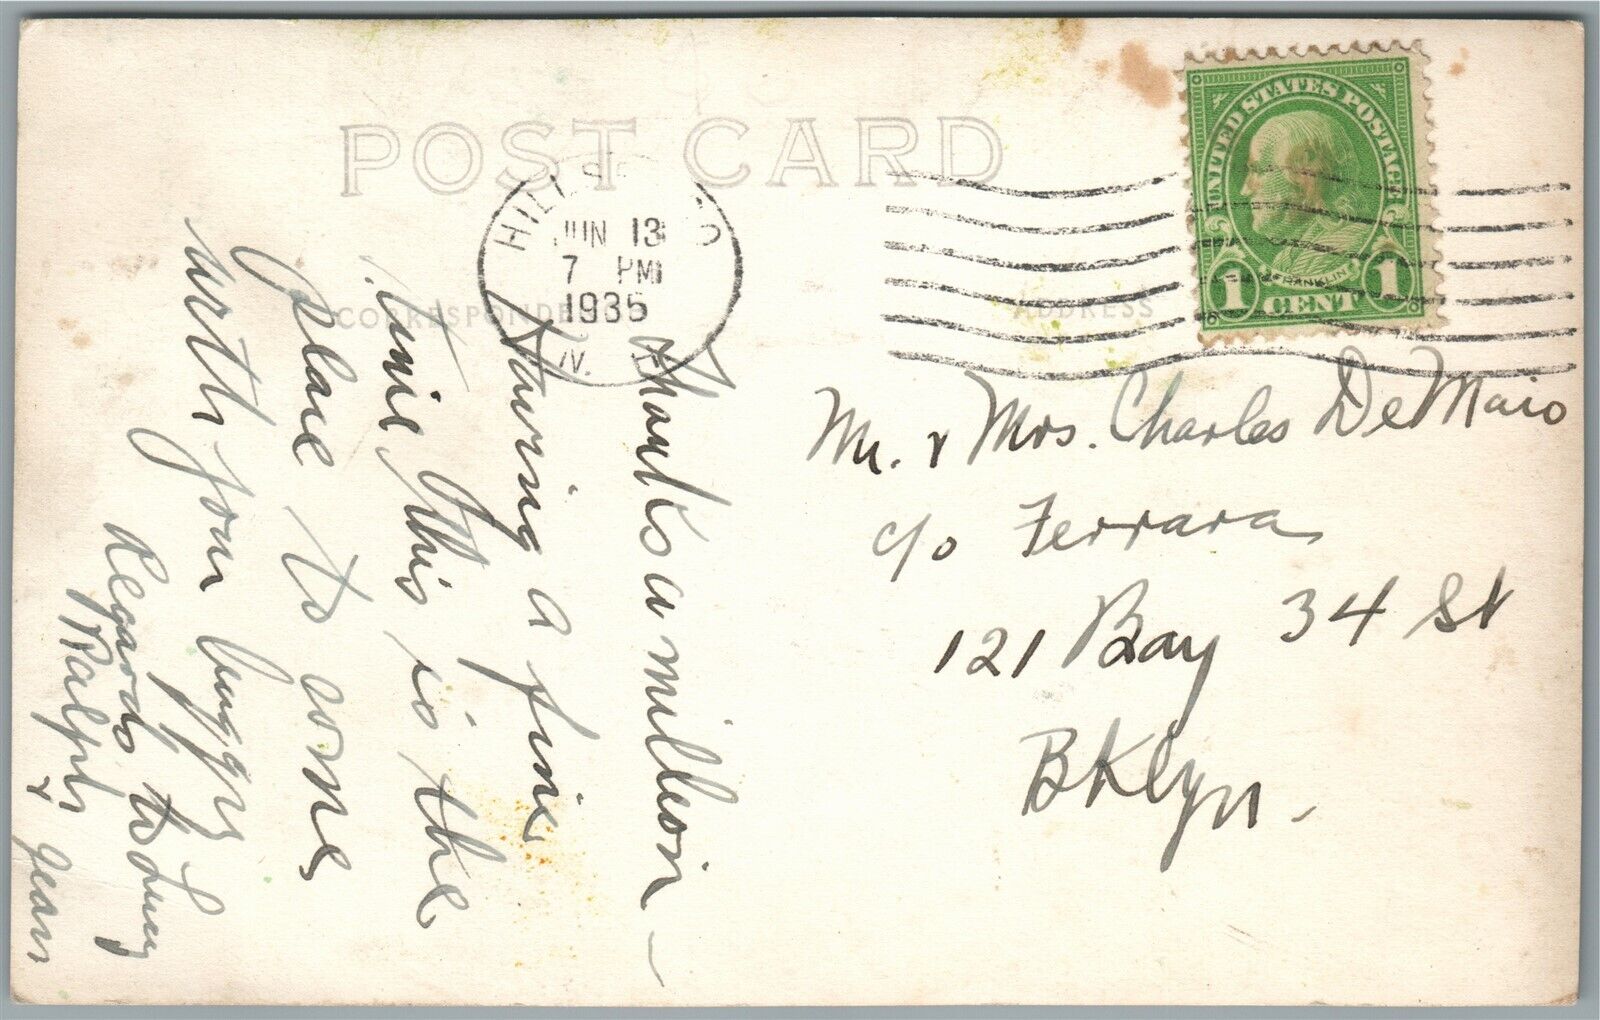 POST CARD
CORRESPONDENCE
ADDRESS
JUN 13
7 PM
1935
N.
UNITED STATES POSTAGE
FRANKLIN
1 CENT 1
Mr. & Mrs. Charles DeMaio
c/o Ferrara
121 Bay 34 St
Bklyn.
Thanks a million —
Having a fine
time. This is the
place to come
with your buggy
Regards to Lucy
Ralph & Jean